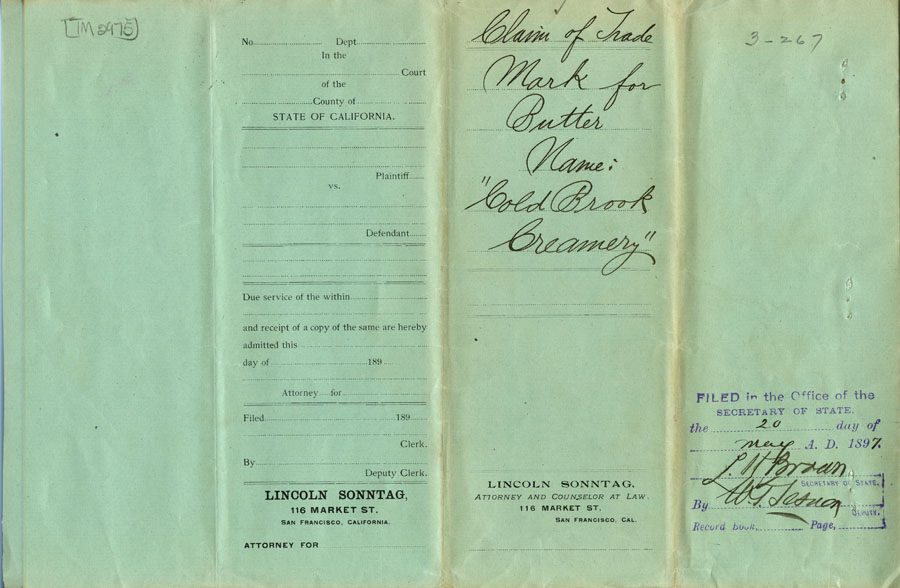 [TM 2975]
No. Dept
In the
Court
of the
County of
STATE OF CALIFORNIA.
Plaintiff
vs.
Defendant
Due service of the within
and receipt of a copy of the same are hereby
admitted this
day of 189
Attorney for
Filed 189
Clerk.
By
Deputy Clerk.
LINCOLN SONNTAG,
116 MARKET ST.
SAN FRANCISCO, CALIFORNIA.
ATTORNEY FOR
Claim of Trade
Mark for
Butter
Name:
"Cold Brook
Creamery"
LINCOLN SONNTAG,
ATTORNEY AND COUNSELOR AT LAW.
116 MARKET ST.
SAN FRANCISCO, CAL.
3-267
FILED in the Office of the
SECRETARY OF STATE.
the 20 day of
May A. D. 1897.
L. H. Brown
SECRETARY OF STATE.
By
DEPUTY.
Record book, Page,